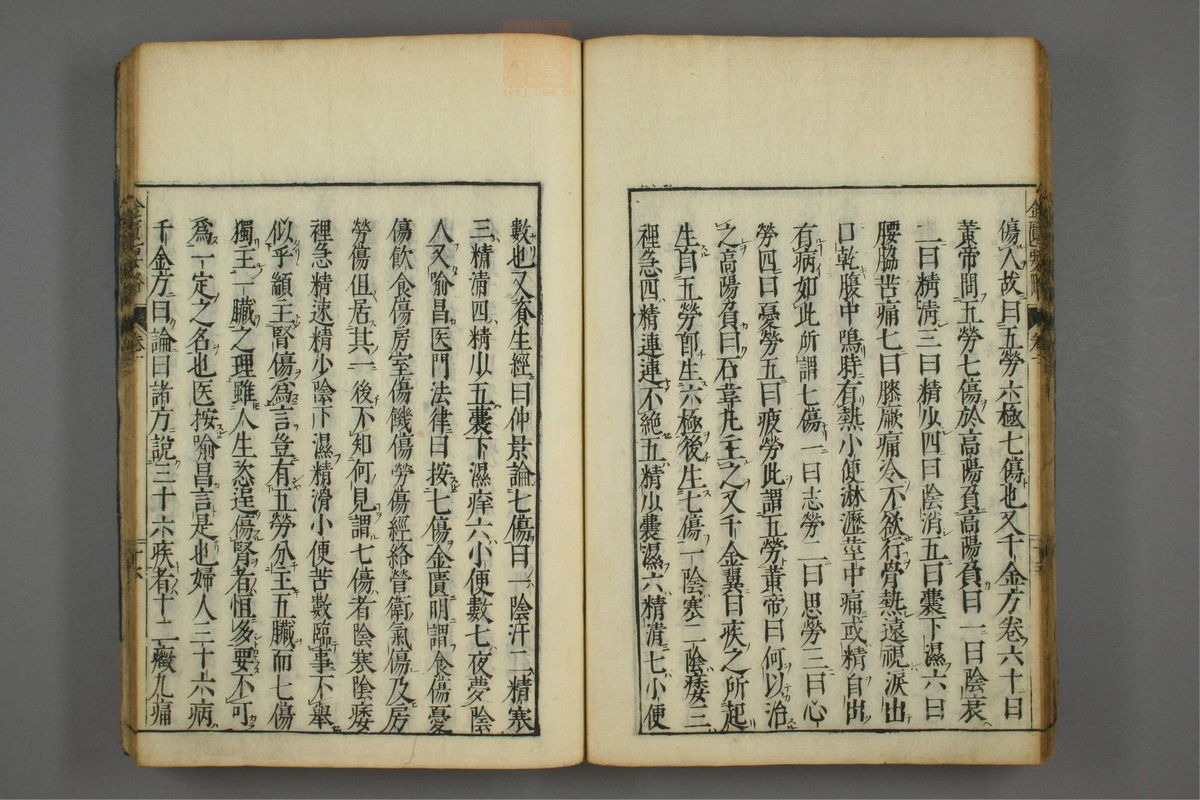 傷人故曰五勞六極七傷也又千金方卷六十曰
黃帝問五勞七傷於高陽負高陽負曰一曰陰衰
二曰精清三曰精少四曰陰消五曰囊下濕六曰
腰脇苦痛七曰膝厥痛冷不欲行骨熱遠視淚出
口乾腹中鳴時有熱小便淋瀝莖中痛或精自出
有病如此所謂七傷一曰志勞二曰思勞三曰心
勞四曰憂勞五曰疲勞此謂五勞黃帝曰何以治
之高陽負曰石韋丸主之又千金翼曰疾之所起
生自五勞即生六極後生七傷一陰寒二陰痿三
裡急四精連連不絕五精少囊濕六精清七小便
數也又養生經曰仲景論七傷曰一陰汗二精寒
三精清四精少五囊下濕痒六小便數七夜夢陰
人又喻昌医門法律曰按七傷金匱明謂食傷憂
傷飲食傷房室傷饑傷勞傷經絡營衛氣傷及房
勞傷但居其一後不知何見謂七傷者陰寒陰痿
裡急精速精少陰下濕精滑小便苦數臨事不舉
似乎顓主腎傷為言豈有五勞分主五臟而七傷
獨主一臟之理雖人生恣逞傷腎者恒多要不可
為一定之名也医按喻昌言是也婦人三十六病
千金方曰論曰諸方說三十六疾者十二癥九痛
金匱要略
卷一
十六